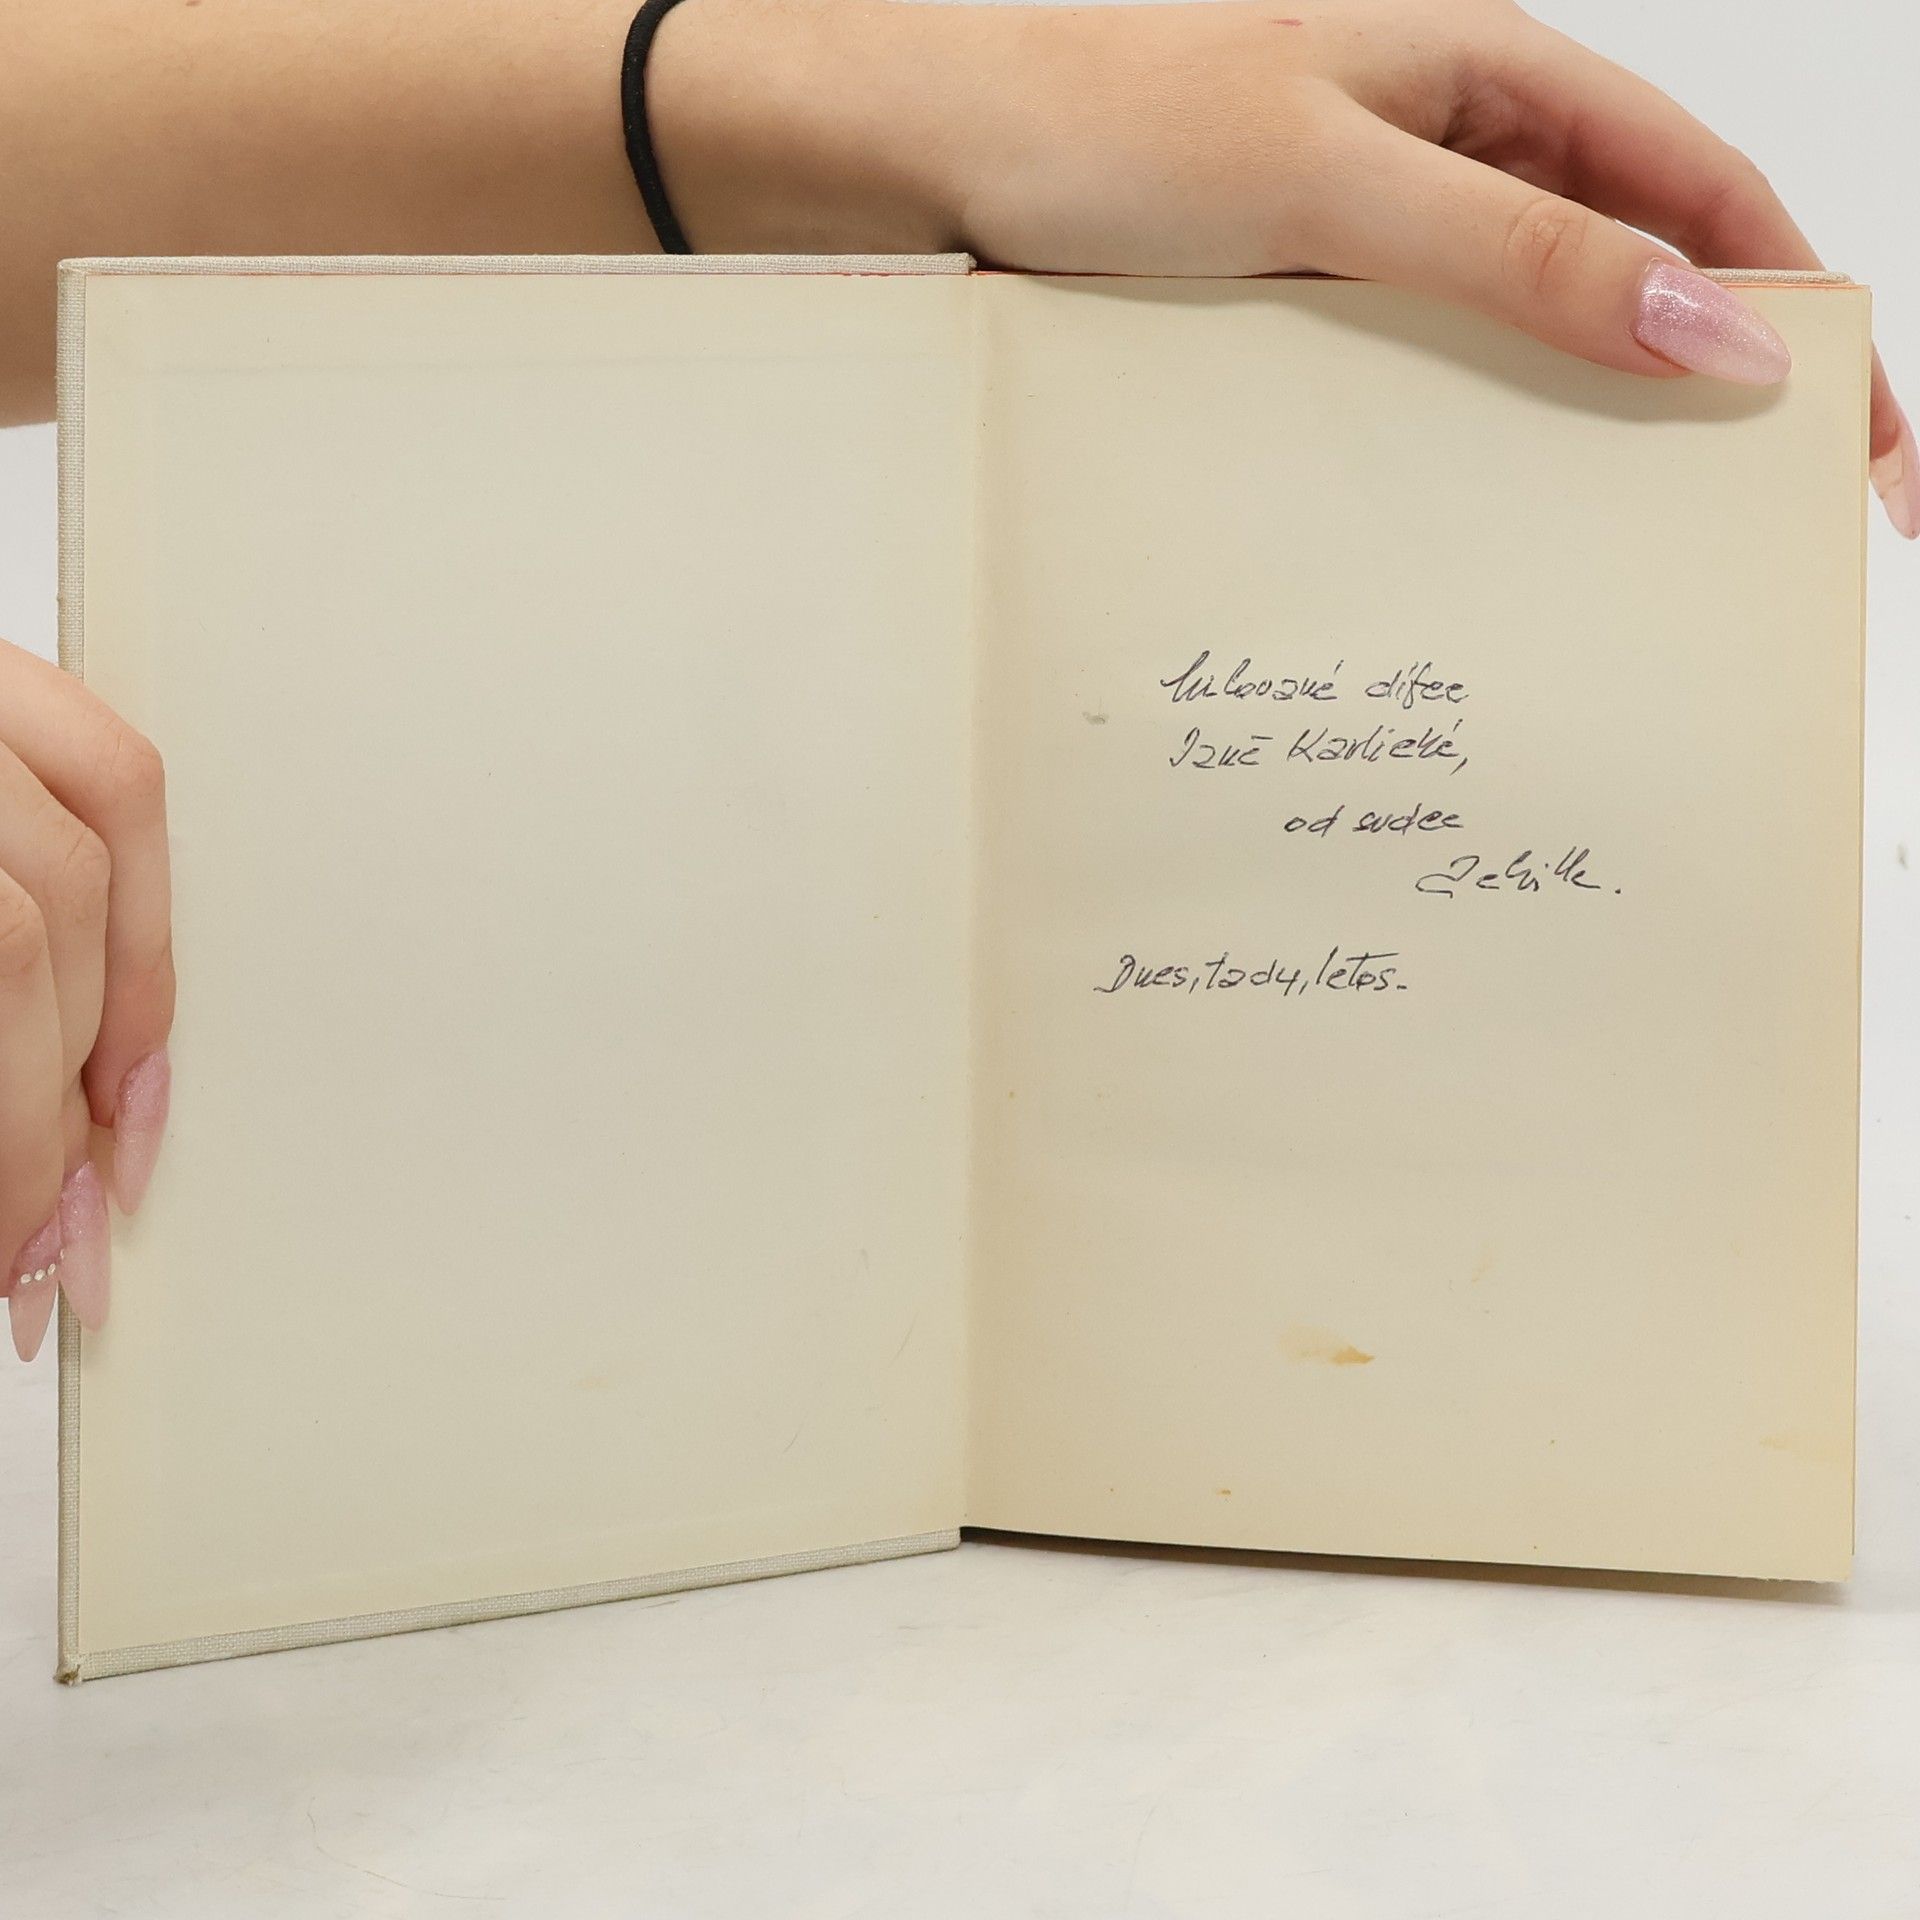 Milované dífce
Janě Karlické,
od srdce
Dnes, tady, letos.